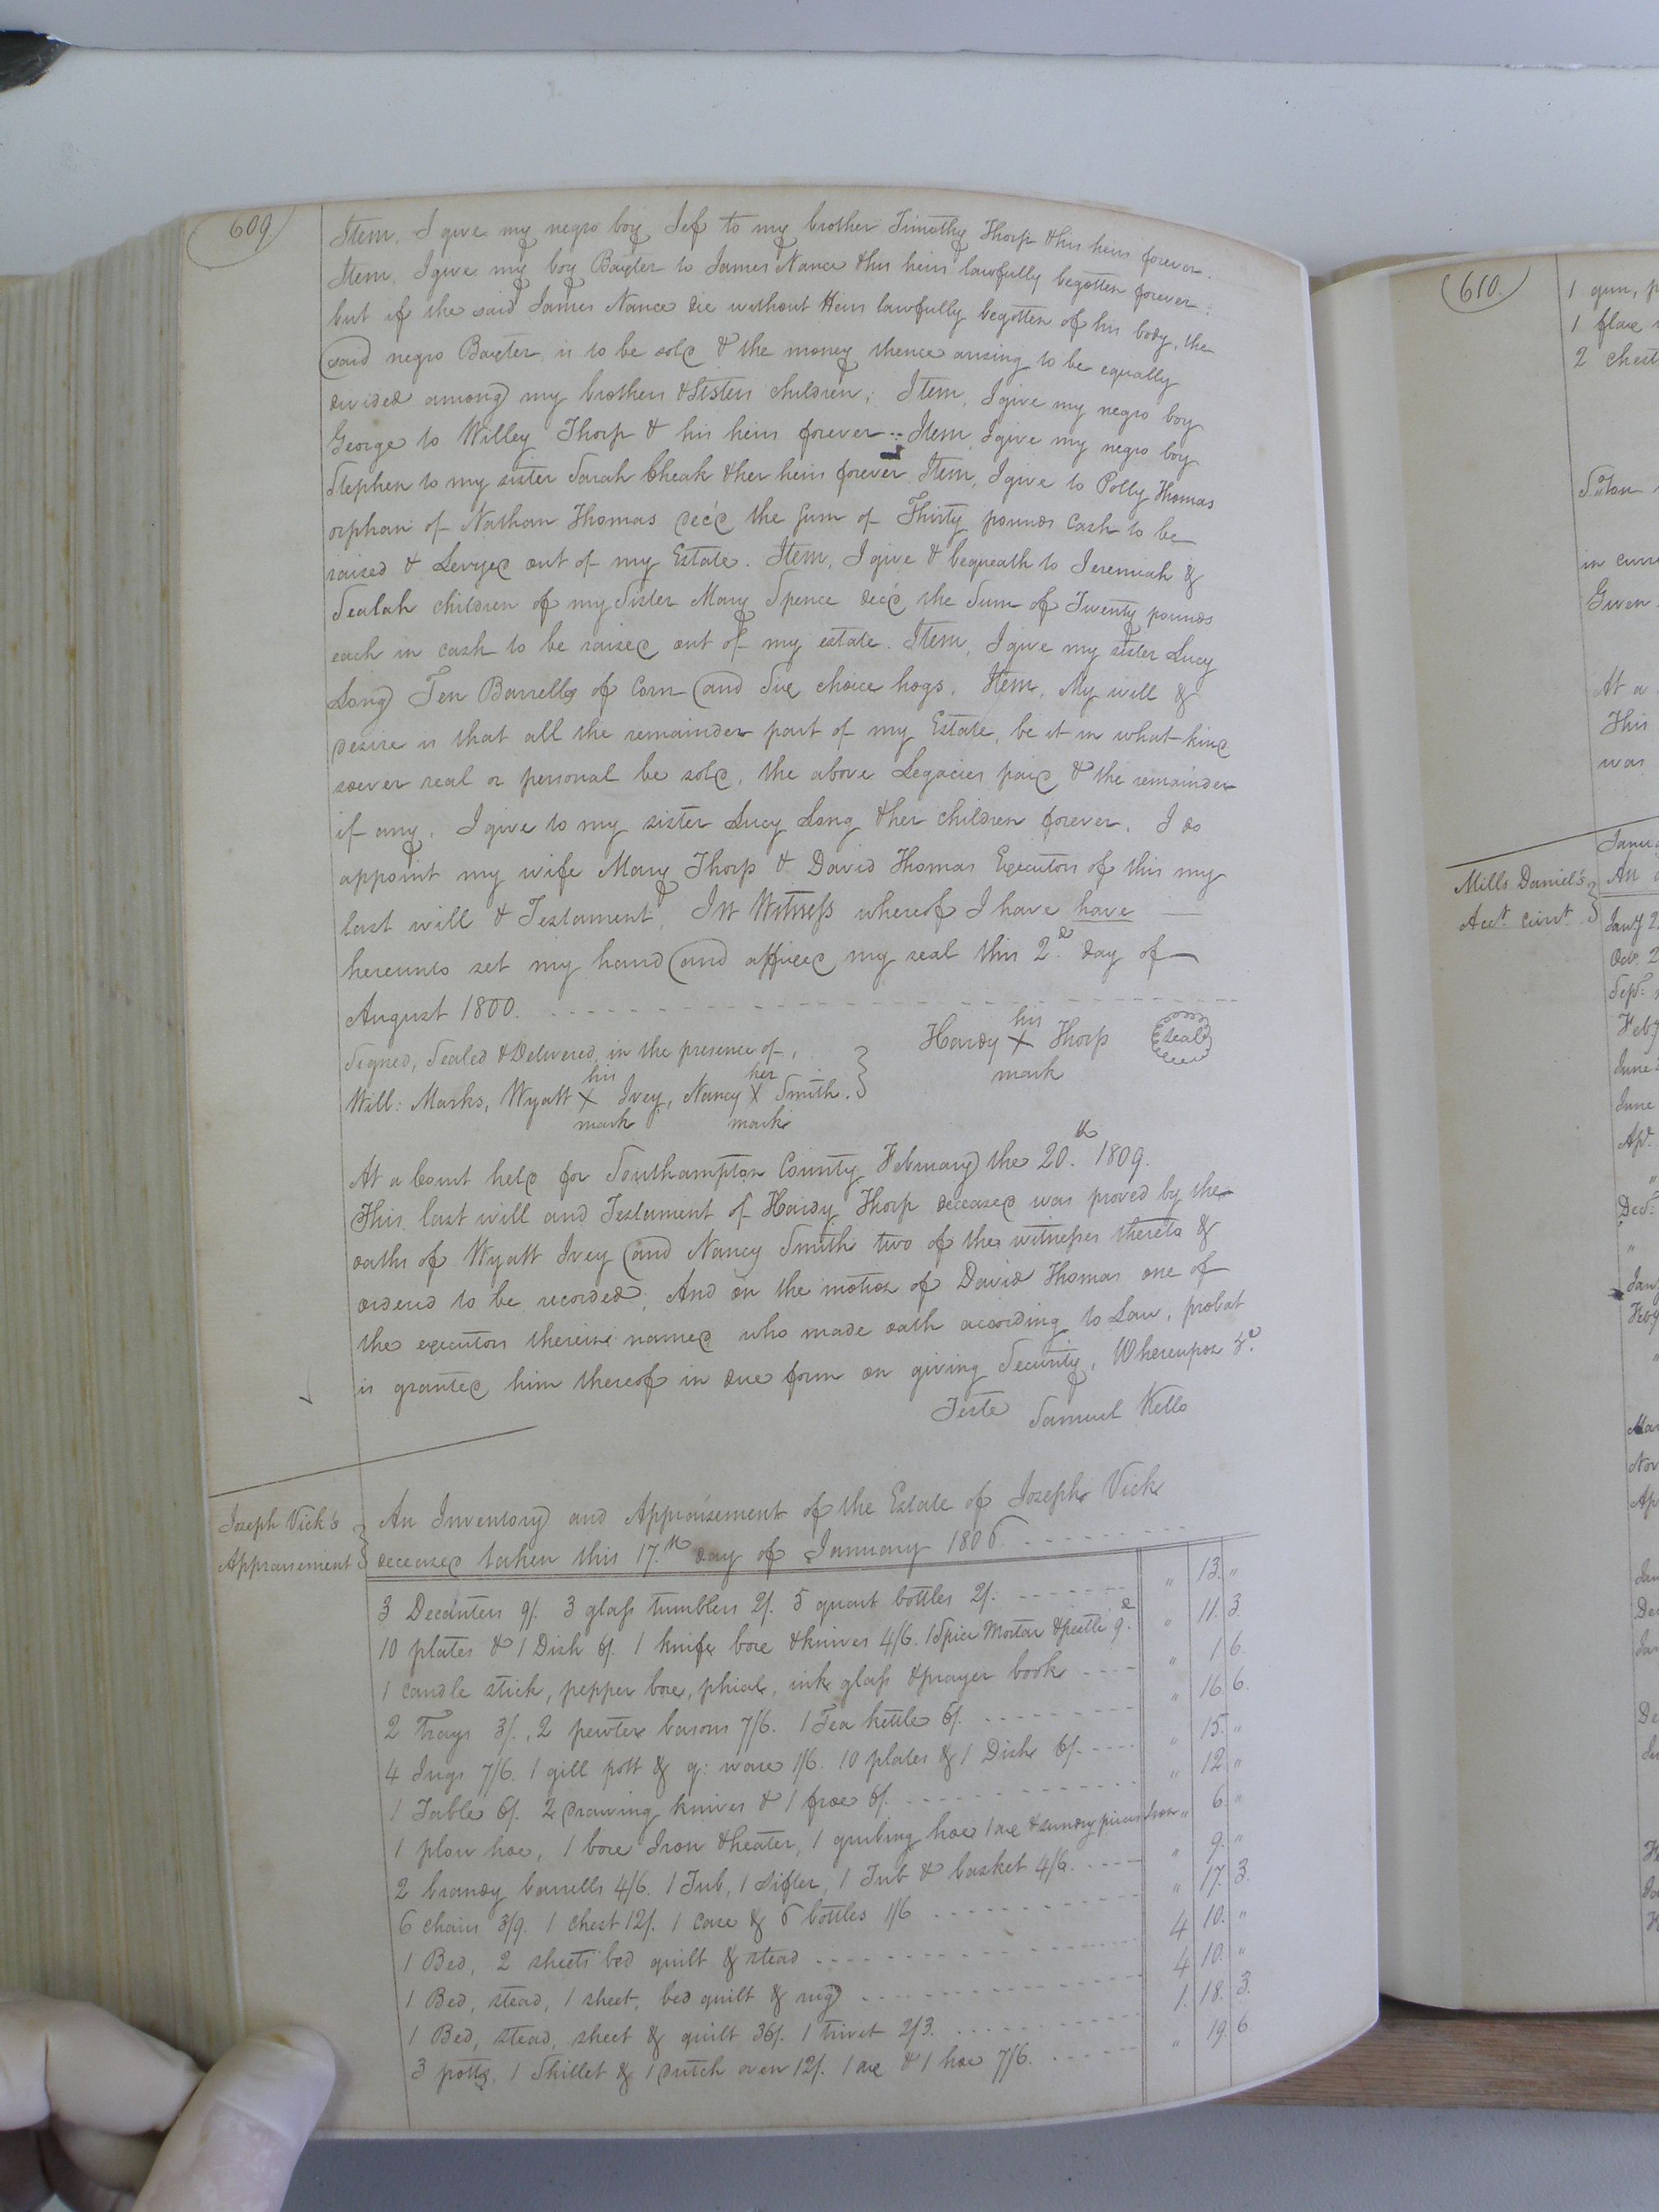 609
Item, I give my negro boy Jef to my brother Timothy Thorp & his heirs forever.
Item, I give my boy Baxter to James Nance & his heirs lawfully begotten forever;
but if the said James Nance die without Heirs lawfully begotten of his body, the
said negro Baxter is to be sold & the money thence arising to be equally
divided among my brothers & Sisters children; Item, I give my negro boy
George to Willey Thorp & his heirs forever. Item, I give my negro boy
Stephen to my sister Sarah Cheak & her heirs forever Item, I give to Polly Thomas
orphan of Nathan Thomas dec'd the Sum of Thirty pounds Cash to be
raised & Levyed out of my Estate. Item, I give & bequeath to Jeremiah &
Sealah children of my Sister Mary Spence dec'd the Sum of Twenty pounds
each in cash to be raised out of my estate. Item, I give my sister Lucy
Long Ten Barrells of Corn and Six choice hogs. Item, My will &
desire is that all the remainder part of my Estate, be it in what kind
soever real or personal be sold, the above Legacies paid & the remainder
if any, I give to my sister Lucy Long & her children forever. I do
appoint my wife Mary Thorp & David Thomas Executors of this my
last will & Testament, In Witness whereof I have have
hereunto set my hand and affixed my seal this 2.d day of
August 1800.
Signed, Sealed & Delivered in the presence of, } Hardy his X mark Thorp Seal
Will: Marks, Wyatt his X mark Ivey, Nancy her X mark Smith.
At a Court held for Southampton County February the 20.th 1809.
This last will and Testament of Hardy Thorp deceased was proved by the
oaths of Wyatt Ivey and Nancy Smith two of the witnesses thereto &
ordered to be recorded, And on the motion of David Thomas one of
the executors therein named who made oath according to Law, probat
is granted him thereof in due form on giving Security, Whereupon &c.
Teste Samuel Kello
Joseph Vick's
Appraisement
An Inventory and Appraisement of the Estate of Joseph Vick
deceased taken this 17.th day of January 1806.
3 Decanters 9/. 3 glass tumblers 2/. 5 quart bottles 2/. " 13. "
10 plates & 1 Dish 6/. 1 knife box & knives 4/6. 1 Spice Mortar & pestle 9.d " 11. 3
1 candle stick, pepper box, phial, ink glass & prayer book " 1. 6
2 Trays 3/., 2 pewter basons 7/6. 1 Tea kettle 6/. " 16. 6.
4 Jugs 7/6. 1 gill pott & q: ware 1/6. 10 plates & 1 Dish 6/. " 15. "
1 Table 6/. 2 Drawing knives & 1 froe 6/. " 12. "
1 plow hoe, 1 box Iron & heater, 1 grubing hoe 1 axe & sundry pieces Iron " 6. "
2 brandy barrells 4/6. 1 Tub, 1 sifter, 1 Tub & basket 4/6. " 9. "
6 chairs 3/9. 1 chest 12/. 1 case & 6 bottles 1/6 " 17. 3.
1 Bed, 2 sheets bed quilt & stead 4 10. "
1 Bed, stead, 1 sheet, bed quilt & rug 4 10. "
1 Bed, stead, sheet & quilt 36/. 1 trivet 2/3. 1. 18. 3.
3 potts, 1 Skillet & 1 Dutch oven 12/. 1 axe & 1 hoe 7/6. " 19. 6
610.
1 gun,
1 flax
2 chest
in curr
Given
At a
This
was
Mills Daniel's
Acct. curt.
An
Jany 2
June
June
Ap.
Dec:
Jany